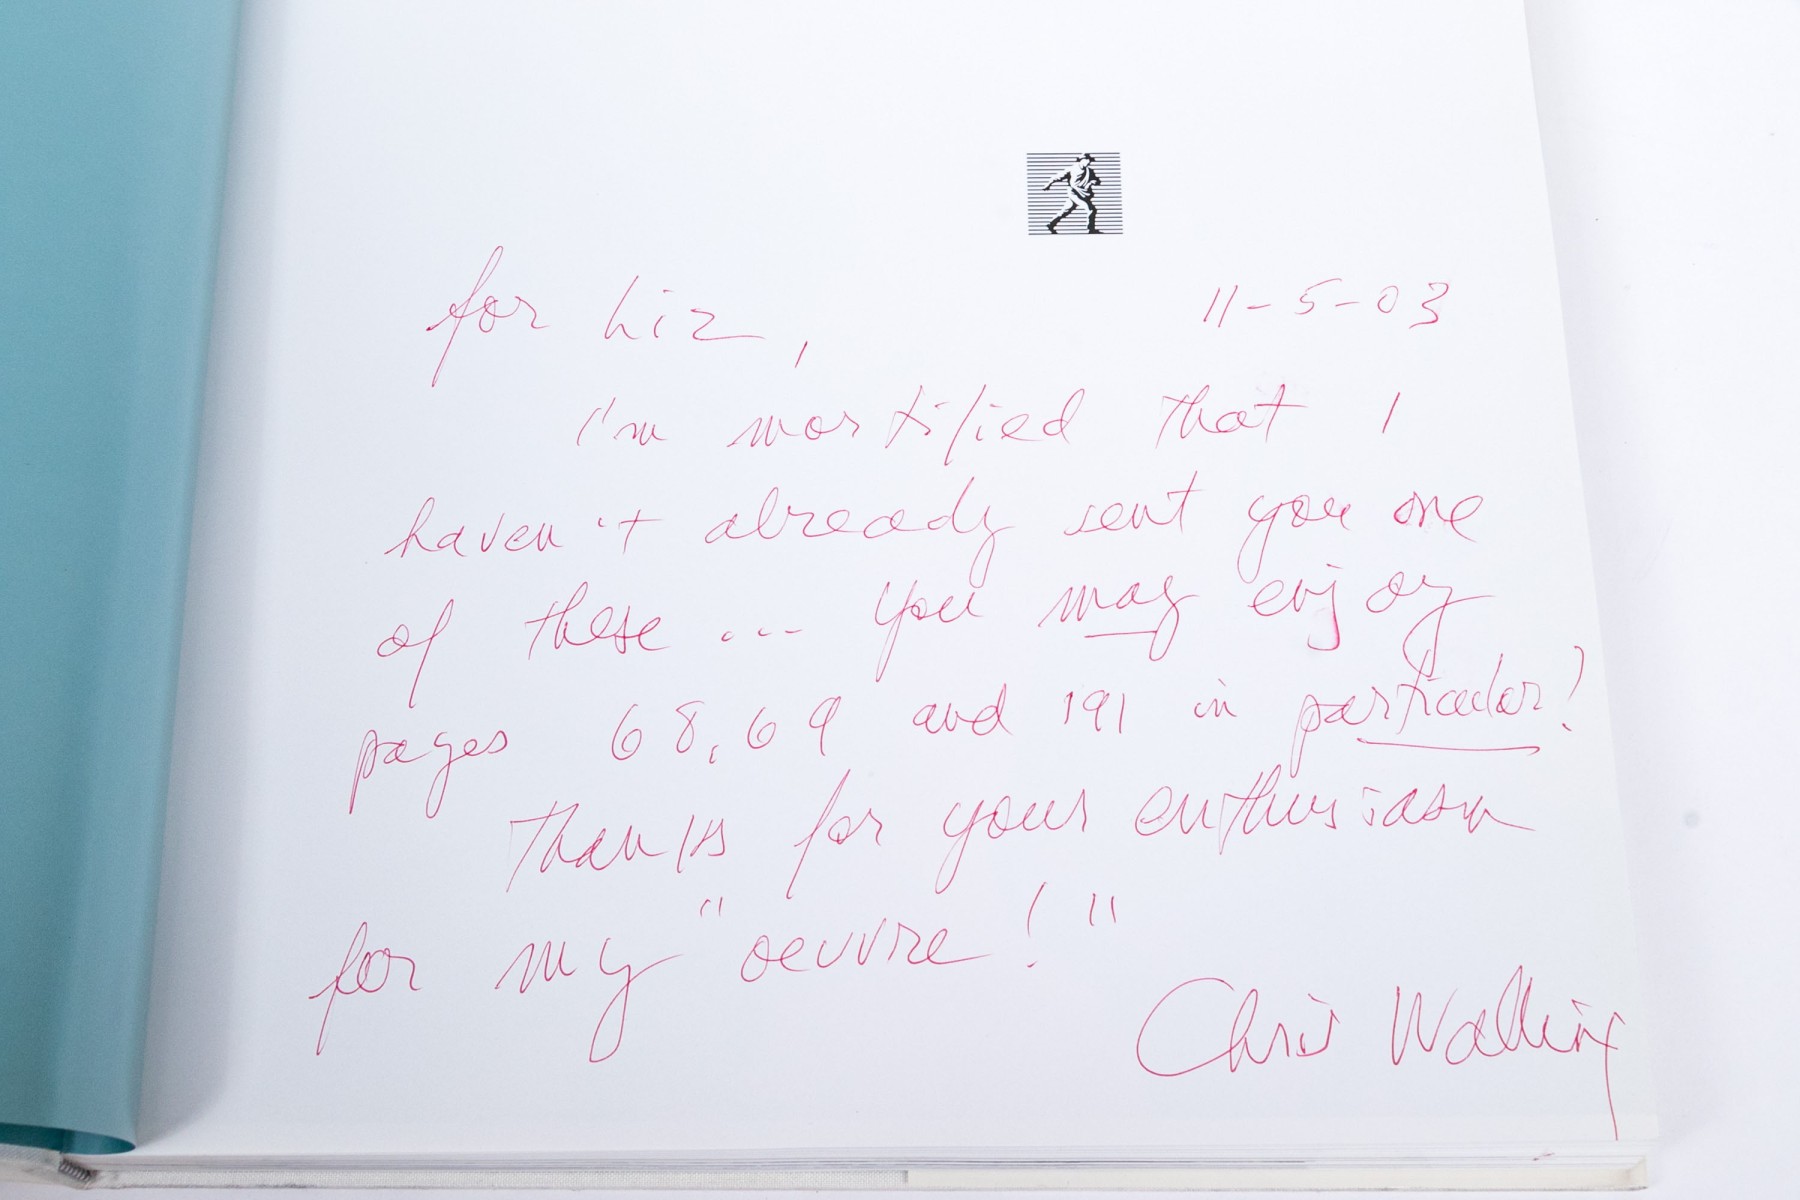 for Liz, 11-5-03
I'm mortified that I
haven't already sent you one
of these ... you may enjoy
pages 68, 69 and 191 in particular!
Thanks for your enthusiasm
for my "oeuvre!"
Chris Walling